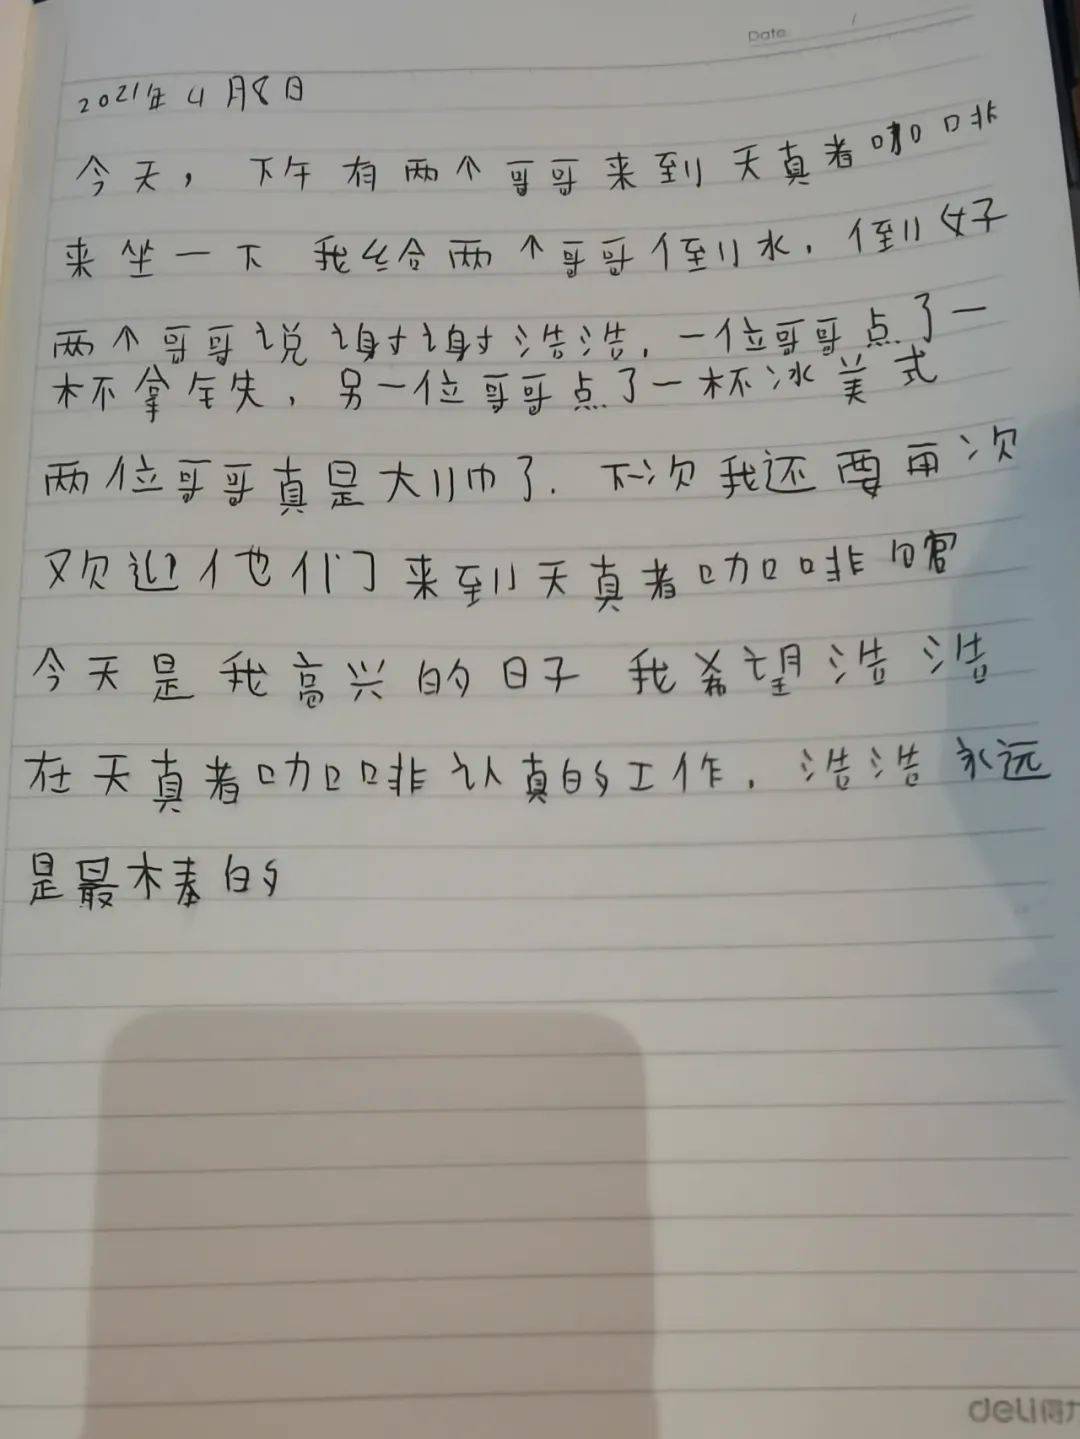 Date /
2021年4月8日
今天，下午有两个哥哥来到天真者咖啡
来坐一下 我给两个哥哥倒水，倒好
两个哥哥说谢谢浩浩，一位哥哥点了一
杯拿铁，另一位哥哥点了一杯冰美式
两位哥哥真是大帅了．下次我还要再次
欢迎他们来到天真者咖啡
今天是我高兴的日子 我希望浩浩
在天真者咖啡认真的工作，浩浩永远
是最棒的
deli得力